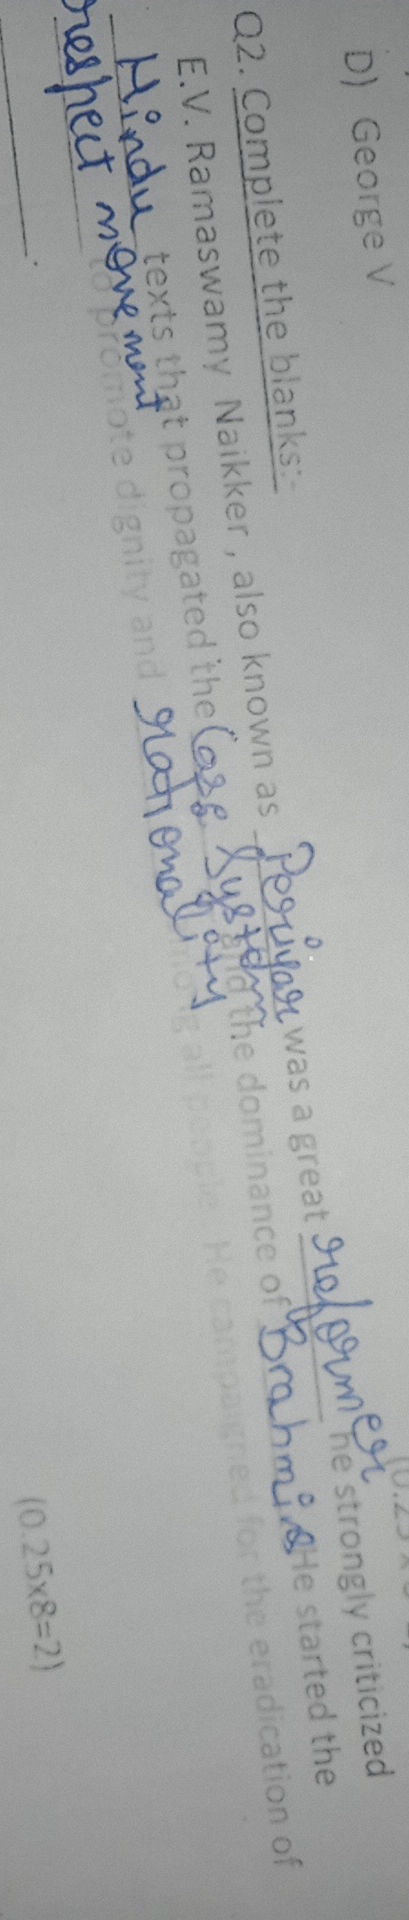 D) George V
Q2. Complete the blanks:-
E.V. Ramaswamy Naikker, also known as Periyar was a great reformer he strongly criticized
Hindu texts that propagated the Caste System and the dominance of Brahmins He started the
respect movement to promote dignity and rationality among all people. He campaigned for the eradication of
(0.25x8=2)